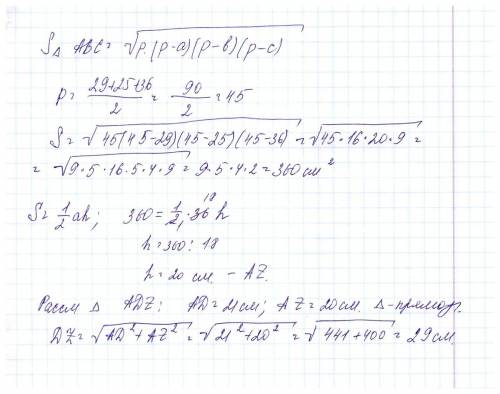 S△ ABC = √p·(p-a)(p-b)(p-c)
p = (29+25+36)/2 = 90/2 = 45
S = √45(45-29)(45-25)(45-36) = √45·16·20·9 =
= √9·5·16·5·4·9 = 9·5·4·2 = 360 см²
S = 1/2 ah; 360 = 1/2 · 36 h 18
h = 360 : 18
h = 20 см. – AZ.
Рассм △ ADZ: AD = 21 см; AZ = 20 см. △ - прямоуг.
DZ = √AD²+AZ² = √21²+20² = √441+400 = 29 см.